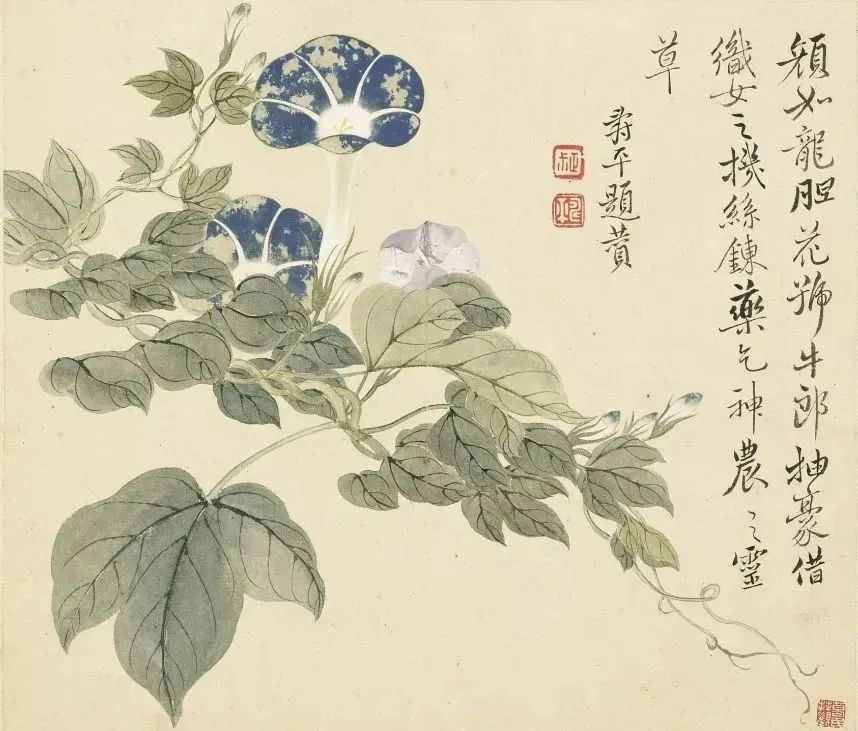 顏如龍胆花號牛郎抽豪借
織女之機絲鍊藥乞神農之靈
草
壽平題贊